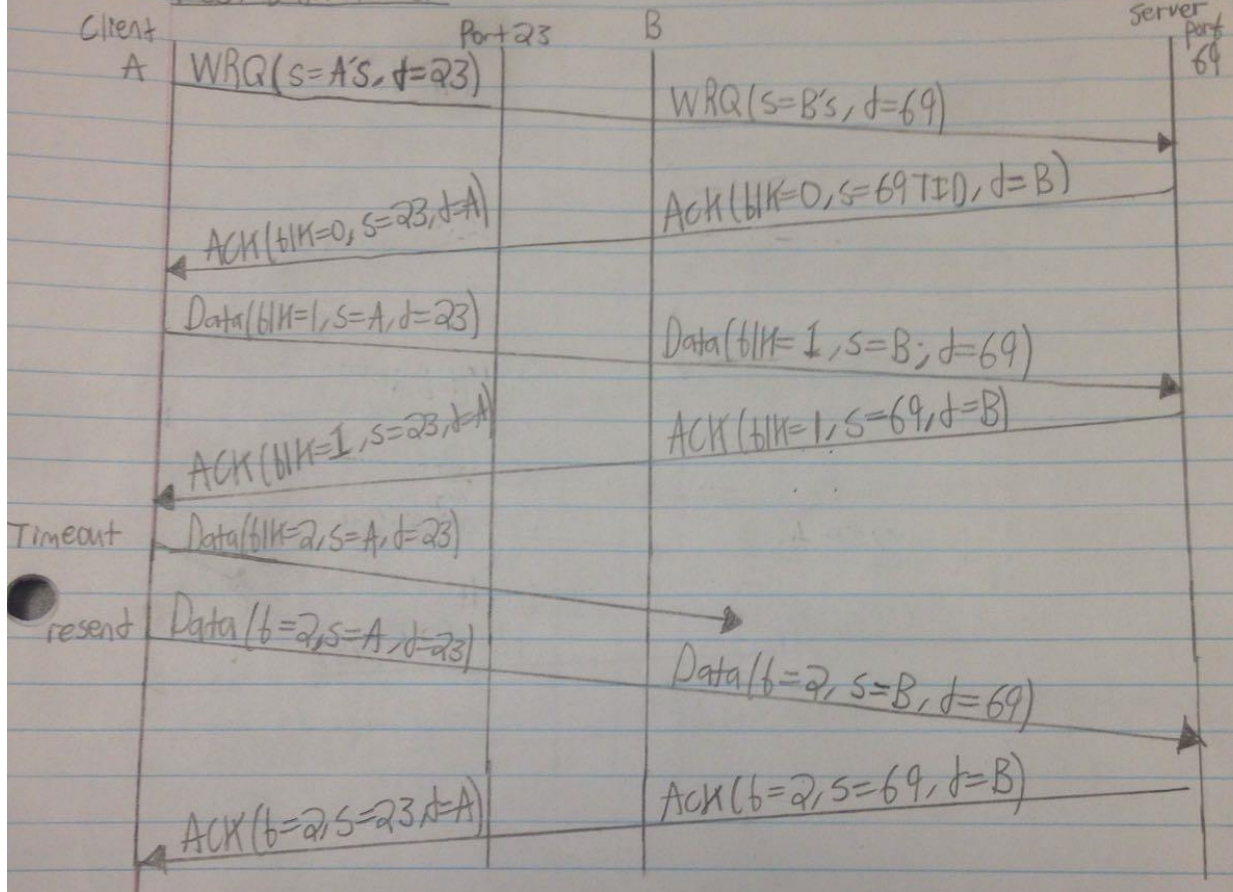 Client
Port 23
B
Server
Port
69
A
WRQ(s=A's, d=23)
WRQ(s=B's, d=69)
Ack(blk=0, s=69 TID, d=B)
ACK(blk=0, s=23, d=A)
Data(blk=1, s=A, d=23)
Data(blk=1, s=B; d=69)
ACK(blk=1, s=69, d=B)
ACK(blk=1, s=23, d=A)
Timeout
Data(blk=2, s=A, d=23)
resend
Data(b=2, s=A, d=23)
Data(b=2, s=B, d=69)
ACK(b=2, s=69, d=B)
ACK(b=2, s=23, d=A)